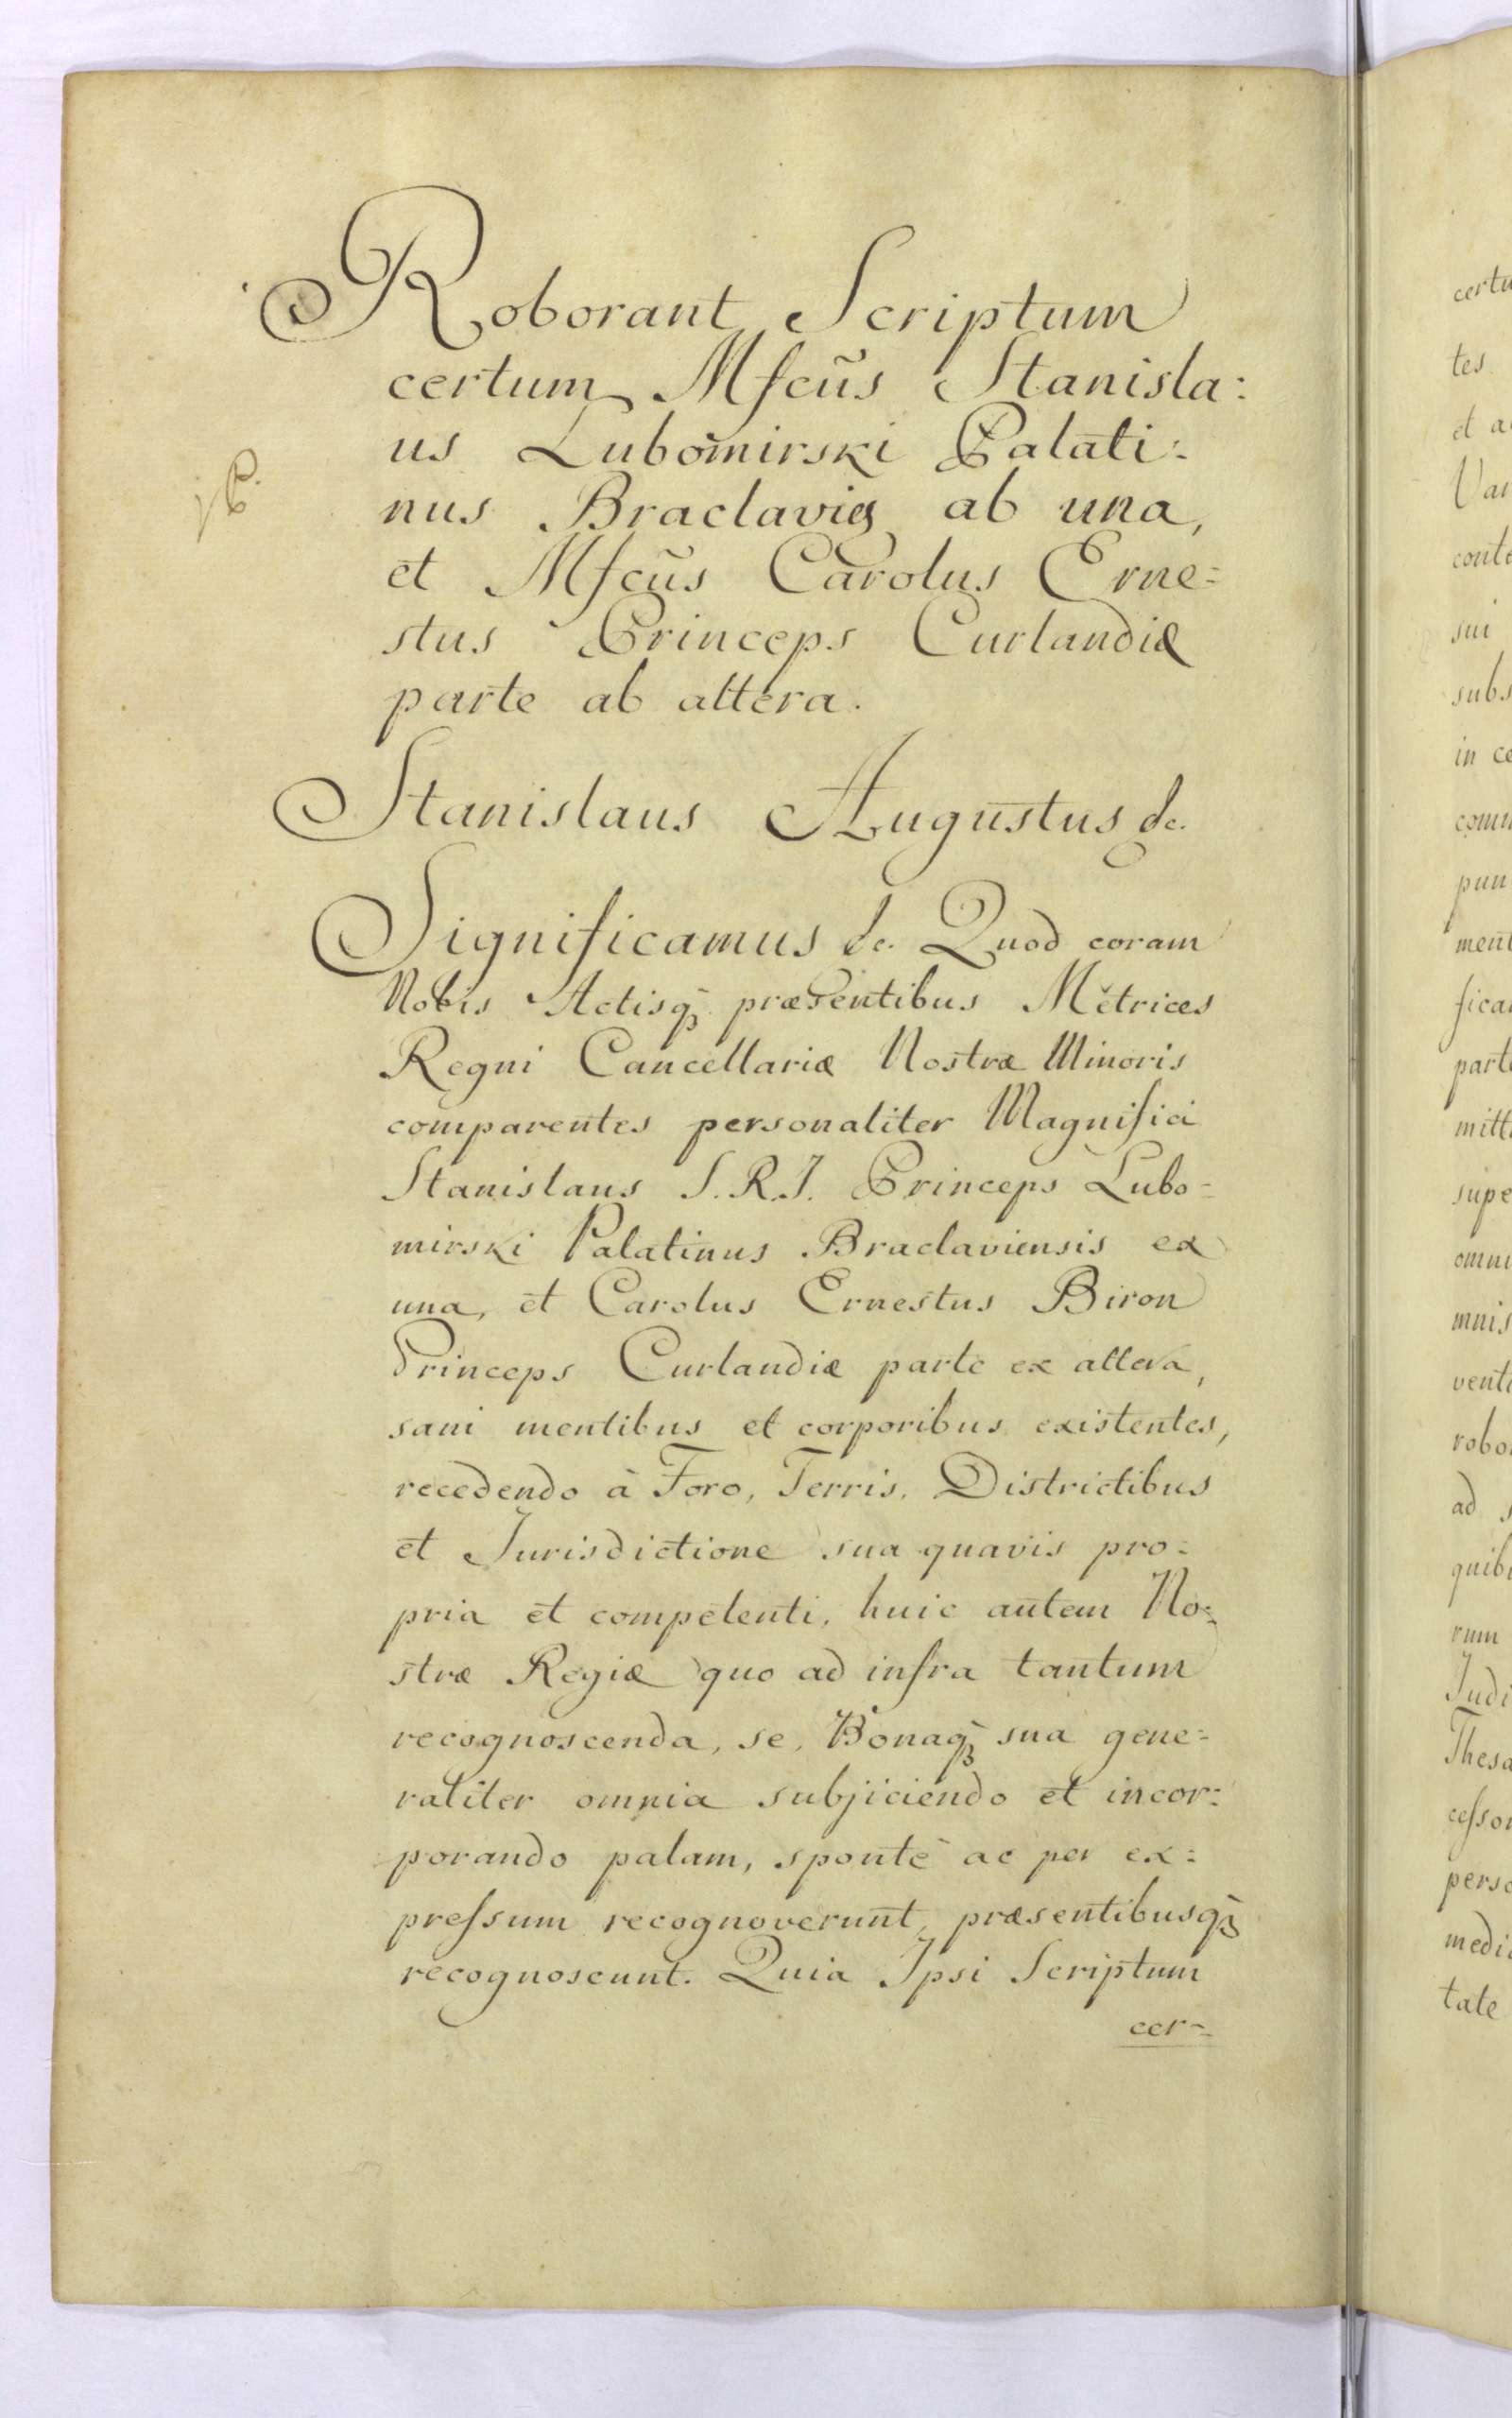 Roborant Scriptum
certum Mfcũs Stanisla:
us Lubomirski Palati:
nus Braclaviẽs ab una,
et Mfcũs Carolus Erne:
stus Princeps Curlandiæ
parte ab altera.
Stanislaus Augustus &c.
Significamus &c. Quod coram
Nobis Actisq̃ præsentibus Metrices
Regni Cancellariæ Nostræ Minoris
comparentes personaliter Magnifici
Stanislaus S.R.I. Princeps Lubo-
mirski Palatinus Braclaviensis ex
una, et Carolus Ernestus Biron
Princeps Curlandiæ parte ex altera,
sani mentibus et corporibus existentes,
recedendo à Foro, Terris, Districtibus
et Jurisdictione sua quavis pro:
pria et competenti, huic autem No:
stræ Regiæ quo ad infra tantum
recognoscenda, se, Bonaq̃ sua gene:
raliter omnia subjiciendo et incor:
porando palam, spontè ac per ex:
preſsum recognoverunt, præsentibusq̃
recognoscunt. Quia Ipsi Scriptum
cer-
certu
tes
et a
Var
conte
sui
subs
in ce
comm
pun
ment
fica
parte
mitt
supe
omni
mnis
vent
robo
ad
quib
rum
Judi
Thesa
ceſsor
perso
medi
tate